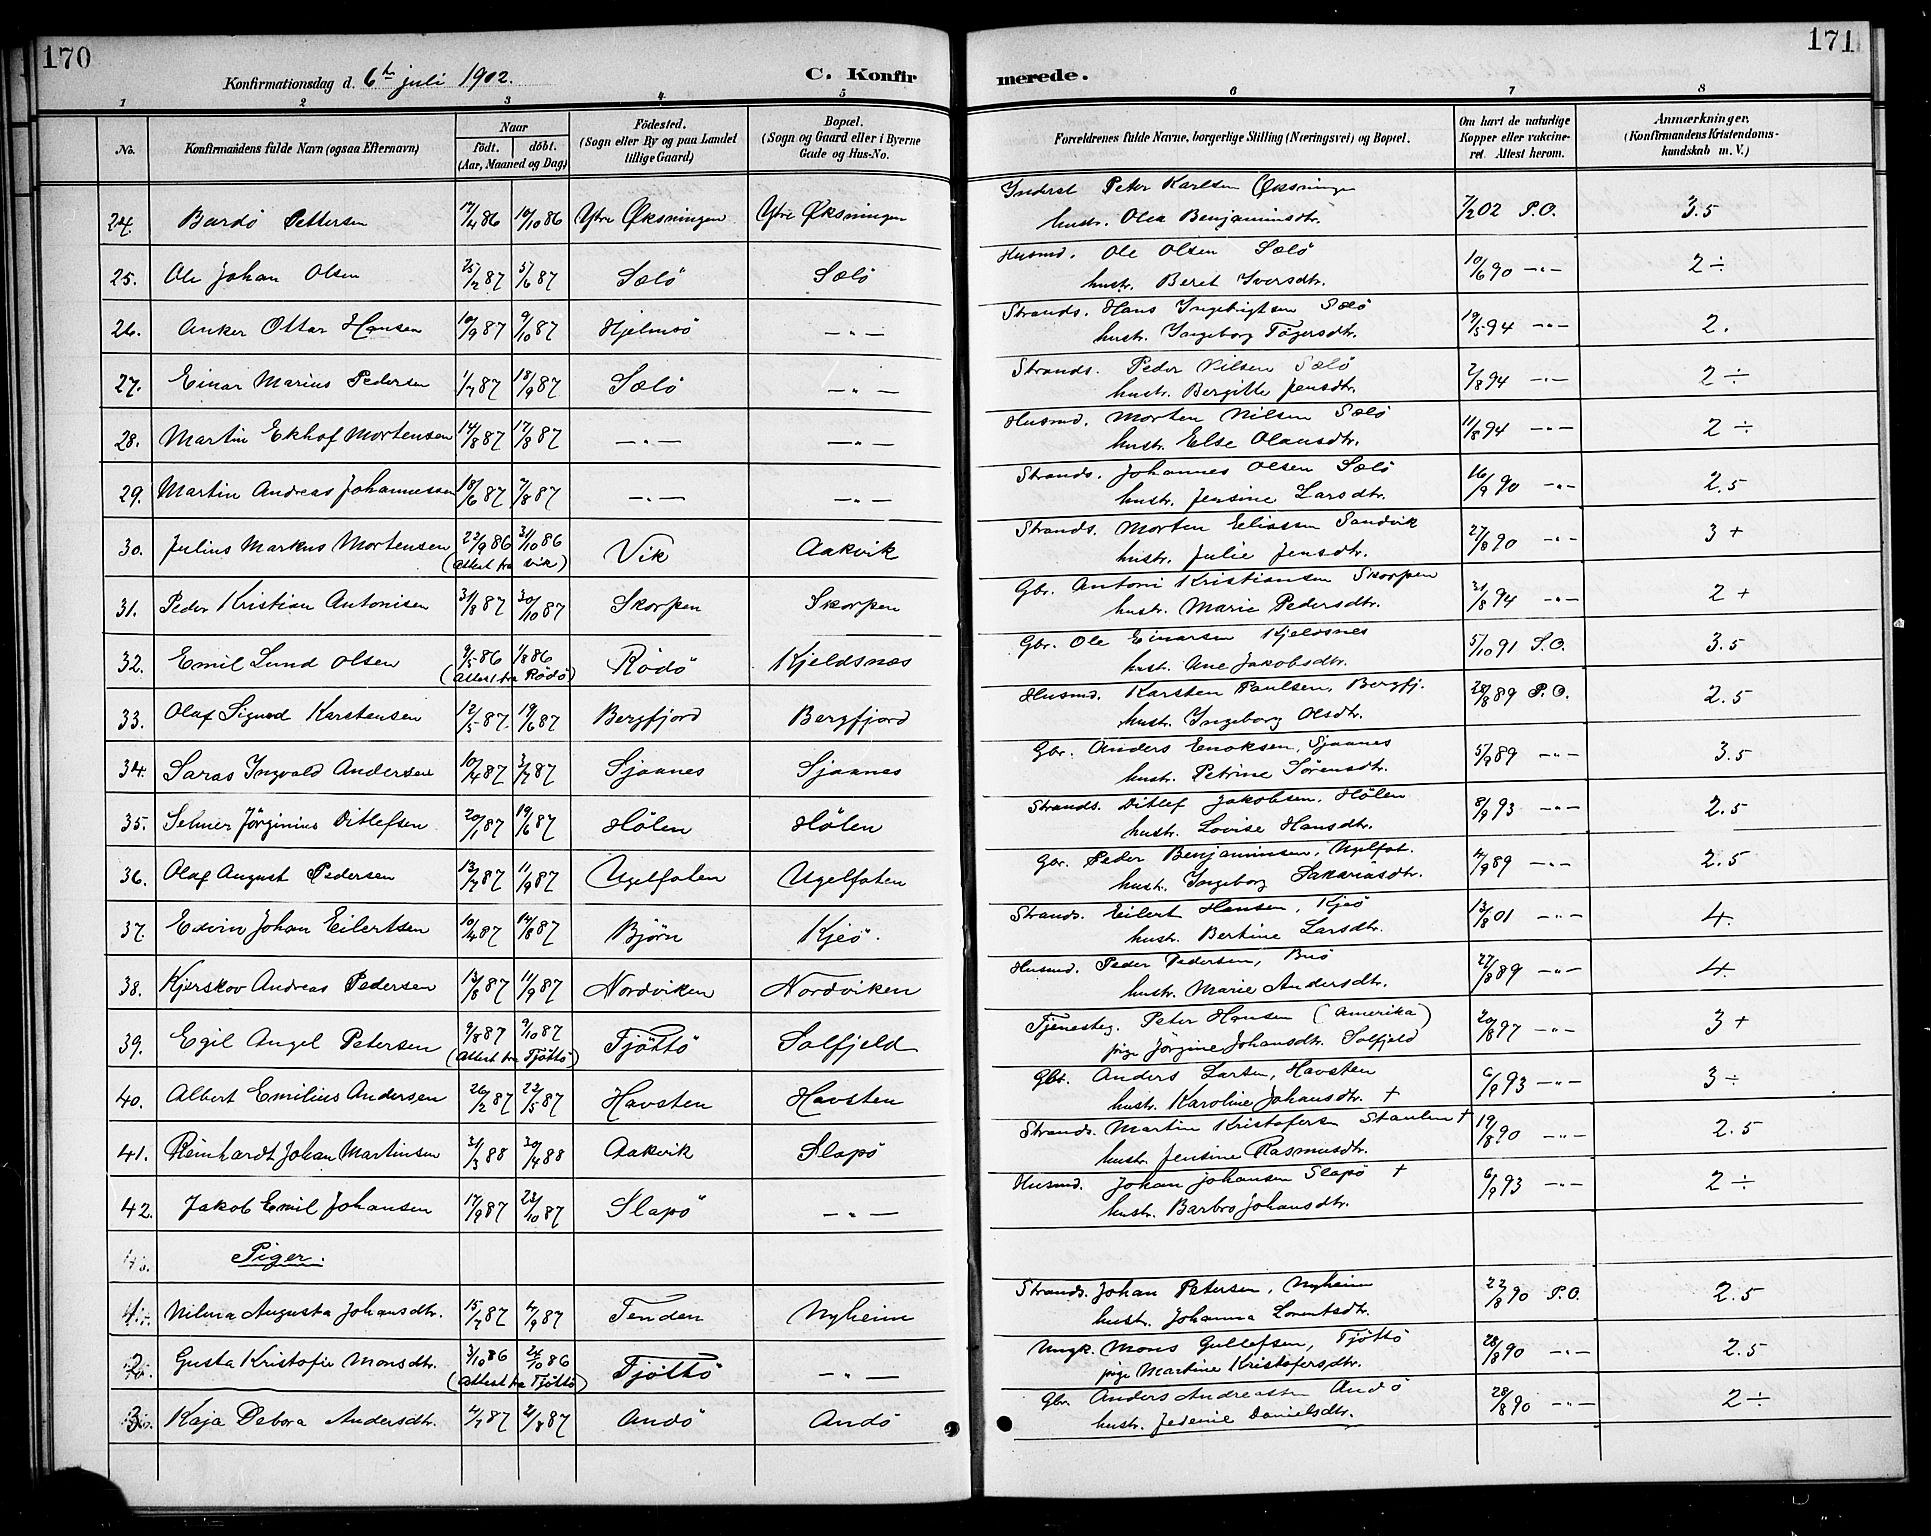 170
171
Konfirmationsdag d. 6te juli 1902.
C. Konfir
merede.
1 2 3 4 5 6 7 8
No. Konfirmandens fulde Navn (ogsaa Efternavn) Naar födt. döbt. (Aar, Maaned og Dag) Födested. (Sogn eller By og paa Landet tillige Gaard) Bopæl. (Sogn og Gaard eller i Byerne Gade og Hus-No. Forældrenes fulde Navne, borgerlige Stilling (Næringsvei) og Bopæl. Om havt de naturlige Kopper eller vakcineret. Attest herom. Anmærkninger. (Konfirmandens Kristendomskundskab m. V.)
24. Bardö Pettersen 17/4 86 10/10 86 Ytre Öksningen Ytre Öksningen Inderst Peter Karlsen Öksningen 7/2 02 P.O. 3.5
hustr. Olea Benjaminsdtr.
25. Ole Johan Olsen 25/2 87 5/6 87 Sælö Sælö Husmd. Ole Olsen Sælö 10/6 90 —"— 2 ÷
hustr. Beret Iversdtr.
26. Anker Ottar Hansen 10/9 87 9/10 87 Hjelmsö —"— Strands. Hans Ingebrigtsen Sælö 19/5 94 —"— 2.
hustr. Ingeborg Tögersdtr.
27. Einar Marius Pedersen 1/7 87 18/9 87 Sælö —"— Strands. Peder Nilsen Sælö 2/8 94 —"— 2 ÷
hustr. Bergitte Jensdtr.
28. Martin Ekhof Mortensen 14/8 87 17/8 87 —"— —"— Husmd. Morten Nilsen Sælö 11/8 94 —"— 2 ÷
hustr. Else Olausdtr.
29. Martin Andreas Johannessen 18/6 87 7/8 87 —"— —"— Strands. Johannes Olsen Sælö 16/9 90 —"— 2.5
hustr. Jensine Larsdtr.
30. Julius Markus Mortensen 22/9 86 31/10 86 Vik Aakvik Strands. Morten Eliassen Sandvik 27/8 90 —"— 3 +
(Attest fra Vik) hustr. Julie Jensdtr.
31. Peder Kristian Antonisen 31/8 87 30/10 87 Skorpen Skorpen Gbr. Antoni Kristiansen Skorpen 31/8 94 —"— 2 +
hustr. Marie Pedersdtr.
32. Emil Lund Olsen 9/5 86 1/8 86 Rödö Kjeldsnes Gbr. Ole Einarsen Kjeldsnes 5/10 91 S.O. 3.5
(Attest fra Rödö) hust. Ane Jakobsdtr.
33. Olaf Sigurd Karstensen 12/5 87 19/6 87 Bergfjord Bergfjord Husmd. Karsten Paulsen, Bergfj. 28/8 89 P.O. 2.5
hustr. Ingeborg Olsdtr.
34. Saras Ingvald Andersen 10/4 87 3/7 87 Sjaanes Sjaanes Gbr. Anders Enoksen, Sjaanes 5/9 89 —"— 3.5
hustr. Petrine Sörensdtr.
35. Selmer Jörginius Ditlefsen 20/1 87 19/6 87 Hölen Hölen Strands. Ditlef Jakobsen, Hölen 8/9 93 —"— 2.5
hustr. Lovise Hansdtr.
36. Olaf August Pedersen 13/7 87 11/9 87 Ugelfoten Ugelfoten Gbr. Peder Benjaminsen, Ugelfot. 4/9 89 —"— 2.5
hustr. Ingeborg Sakariasdtr.
37. Edvin Johan Eilertsen 10/4 87 14/8 87 Björn Kjeö. Strands. Eilert Hansen, Kjeö 13/8 01 —"— 4.
hustr. Bertine Larsdtr.
38. Kjerskov Andreas Pedersen 13/8 87 11/9 87 Nordviken Nordviken Husmd. Peder Pedersen, 27/8 89 —"— 4.
hustr. Marie Andersdtr.
39. Egil Angel Petersen 9/8 87 9/10 87 Tjöttö Solfjeld Tjenesteg. Peter Hansen (Amerika) 20/8 97 —"— 3 +
(Attest fra Tjöttö) pige Jörgine Johansdtr. Solfjeld
40. Albert Emilius Andersen 26/2 87 22/5 87 Havsten Havsten Gbr. Anders Larsen, Havsten 6/9 93 —"— 3 ÷
hustr. Karoline Johansdtr. +
41. Reinhardt Johan Martinsen 31/3 88 30/4 88 Aakvik Slapö Strands. Martin Kristofersen + 19/8 90 —"— 2.5
hustr. Jensine Rasmusdtr.
42. Jakob Emil Johansen 17/9 87 23/10 87 Slapö —"— Husmd. Johan Johansen Slapö + 6/9 93 —"— 2 ÷
hustr. Barbro Johansdtr.
Piger.
1. Nilma Augusta Johansdtr. 15/7 87 4/9 87 Tenden Nyheim Strands. Johan Petersen, Nyheim 22/8 90 P.O. 2.5
hustr. Johanna Lorentsdtr.
2. Gusta Kristofie Monsdtr. 3/10 86 24/10 86 Tjöttö —"— Ungk. Mons Gullefsen, Tjöttö 28/8 90 —"— 2.5
(Attest fra Tjöttö) pige Martine Kristofersdtr.
3. Kaja Debora Andersdtr. 4/7 87 21/8 87 Andö Andö Gbr. Anders Andreassen Andö 28/8 90 —"— 2 ÷
hustr. Danielsdtr.